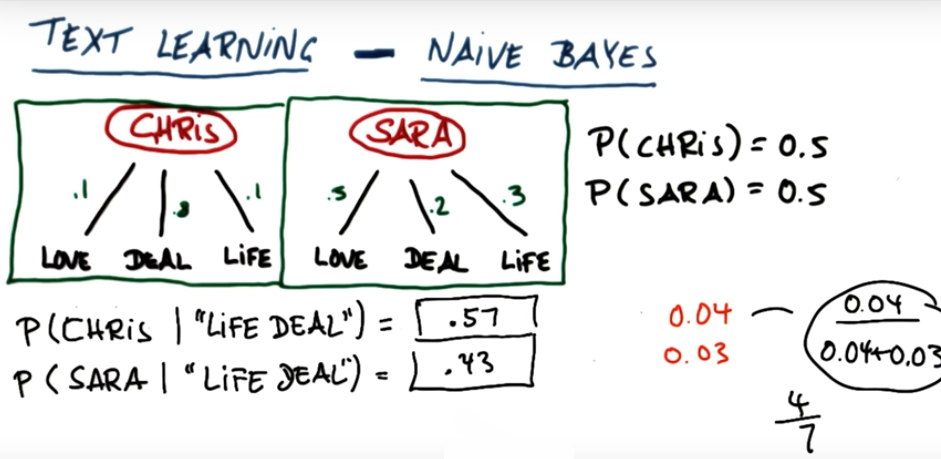 TEXT LEARNING — NAIVE BAYES
CHRIS
.1 .8 .1
LOVE DEAL LIFE
SARA
.5 .2 .3
LOVE DEAL LIFE
P(CHRIS) = 0.5
P(SARA) = 0.5
P(CHRIS | "LIFE DEAL") = .57
P(SARA | "LIFE DEAL") = .43
0.04 — 0.04
0.03 0.04+0.03
4
7